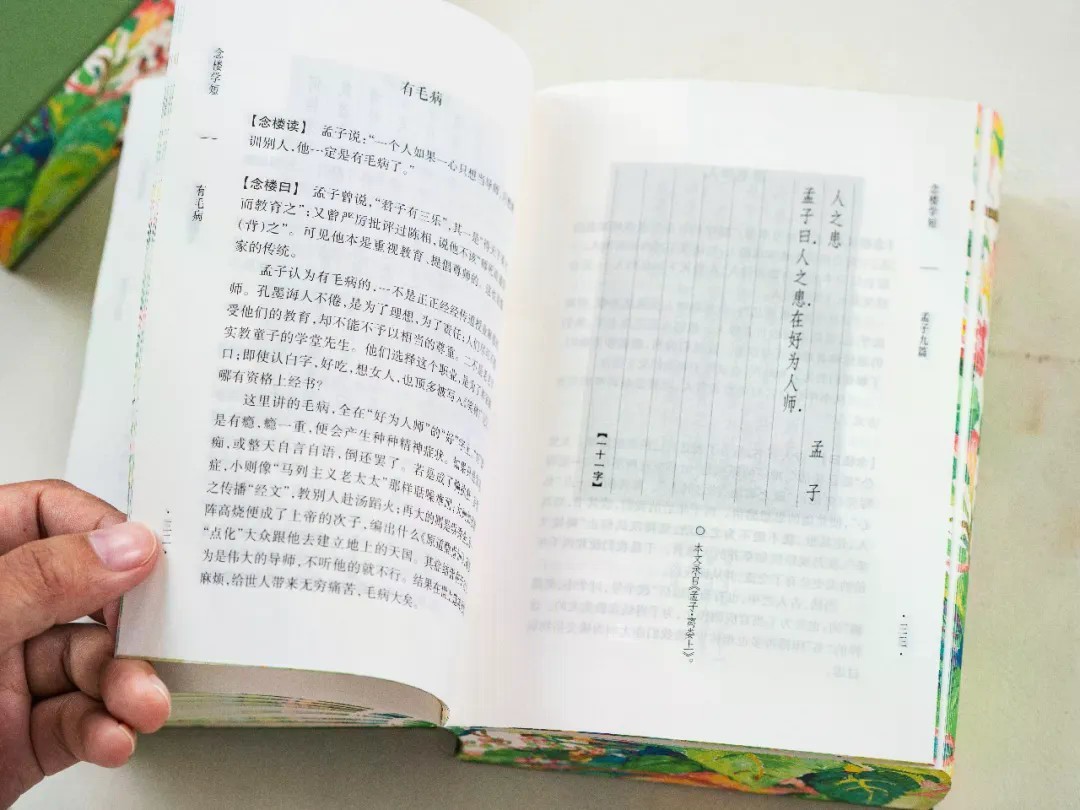 念楼学短
有毛病
有毛病
【念楼读】 孟子说:“一个人如果一心只想当导师,
训别人,他一定是有毛病了。”
【念楼曰】 孟子曾说,“君子有三乐”,其一是“得天下
而教育之”;又曾严厉批评过陈相,说他不该“师死而
(背)之”。可见他本是重视教育、提倡尊师的。这
家的传统。
孟子认为有毛病的,一不是正正经经传道授业
师。孔墨诲人不倦,是为了理想,为了责任;人们
受他们的教育,却不能不予以相当的尊重。二不是
实教童子的学堂先生。他们选择这个职业,是为了
口;即使认白字,好吃,想女人,也顶多被写入《笑林》
哪有资格上经书?
这里讲的毛病,全在“好为人师”的“好”字上。“好”
是有瘾,瘾一重,便会产生种种精神症状。如果
痴,或整天自言自语,倒还罢了。若是成了
症,小则像“马列主义老太太”那样聒噪
之传播“经文”,教别人赴汤蹈火;再大的则是
阵高烧便成了上帝的次子,编出什么《原道
“点化”大众跟他去建立地上的天国。其
为是伟大的导师,不听他的就不行。结果
麻烦,给世人带来无穷痛苦,毛病大矣。
念楼学短
孟子九篇
人之患
孟子曰.人之患.在好为人师.
孟子
【一十一字】
○ 本文录自《孟子·离娄上》。
·三三·